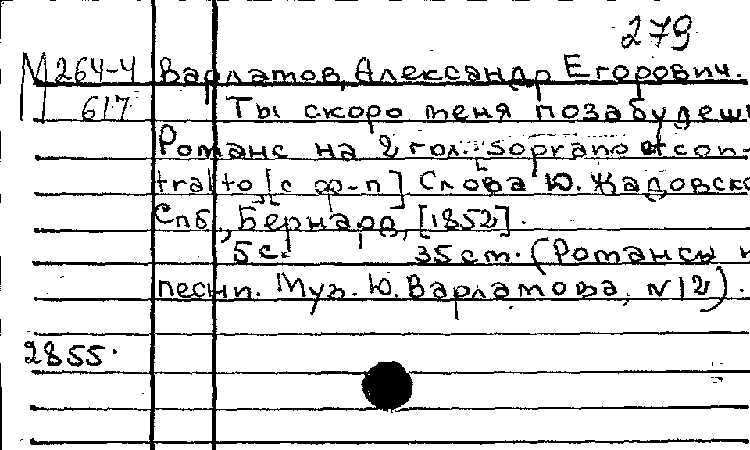 279
М 264-4 Варламов, Александр Егорович.
617 Ты скоро меня позабудеш
Романс на 2 гол. soprano et con-
tralto [с ф-п] Слова Ю. Жадовско
Спб., Бернард, [1852].
5 с. 35 см. (Романсы и
песни. Муз. Ю. Варламова, N 12).
2855.